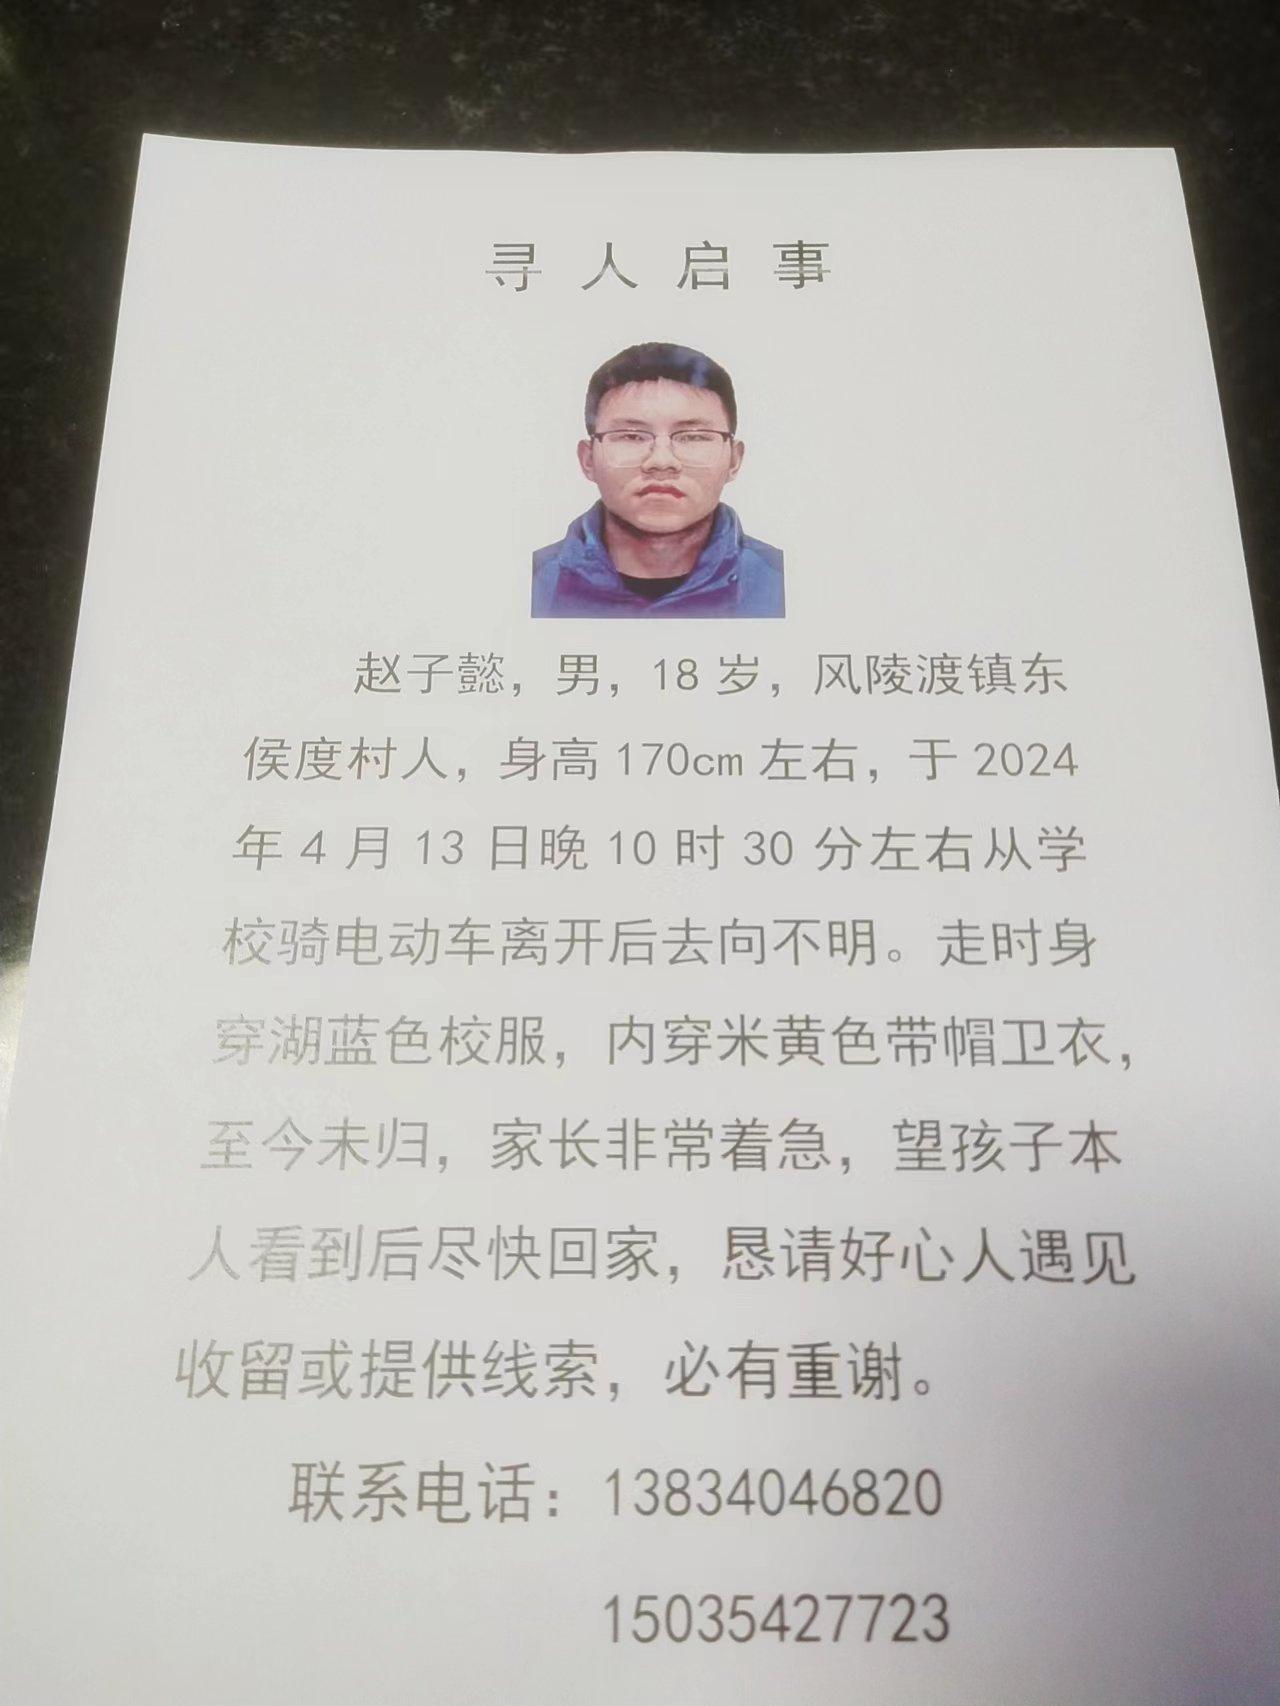 寻人启事
赵子懿，男，18岁，风陵渡镇东
侯度村人，身高170cm左右，于2024
年4月13日晚10时30分左右从学
校骑电动车离开后去向不明。走时身
穿湖蓝色校服，内穿米黄色带帽卫衣，
至今未归，家长非常着急，望孩子本
人看到后尽快回家，恳请好心人遇见
收留或提供线索，必有重谢。
联系电话：13834046820
15035427723